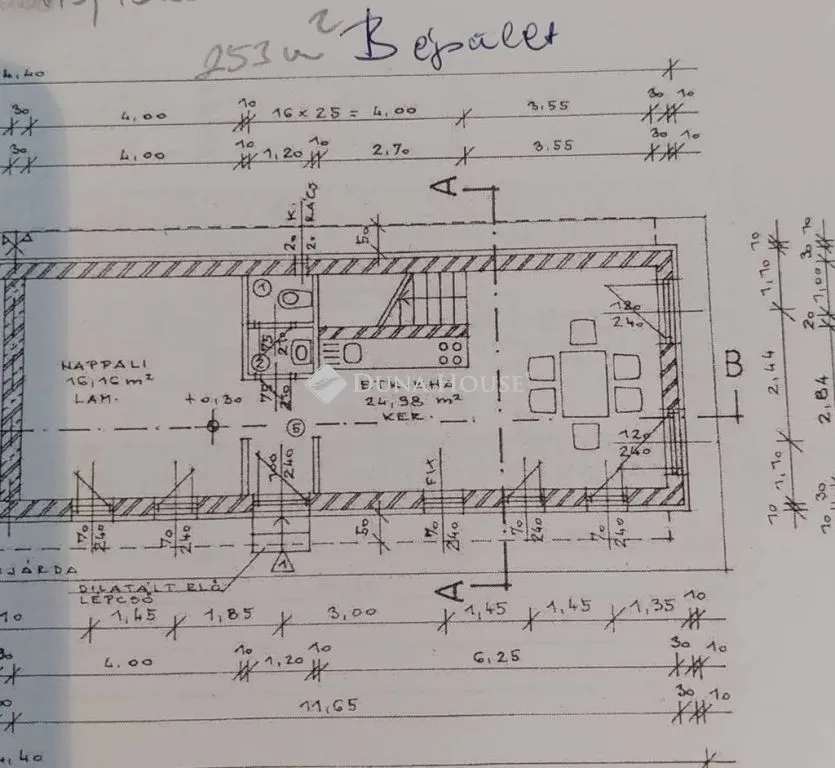 253 m² Bejárat
4,40
30 4,00 10 16 x 25 = 4,00 3,55 30 10
30 4,00 10 1,20 10 2,70 3,55 30 10
A
20 K.
20 RÁCS
50
1
75
210
2
75
210
180
240
NAPPALI
16,16 m²
LAM.
+0,30
DUNA HOUSE
24,98 m²
KER.
5
B
120
240
100
240
FIX
70
240
70
240
50
70
240
70
240
70
240
JÁRDA
1
DILATÁLT ELŐ
LÉPCSŐ
A
10 1,45 1,85 3,00 1,45 1,45 1,35 10
30 4,00 10 1,20 10 6,25 30 10
11,65 30 10
4,40
10 1,10 2,44 1,10 10
10 30 1,00 20 2,84 30 10